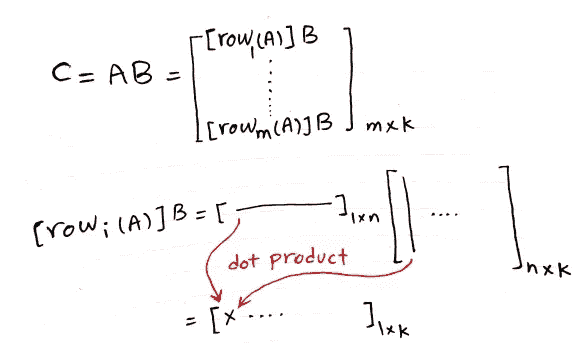 C = AB = [ [row₁(A)] B
⋮
[rowₘ(A)] B ] m×k
[rowᵢ(A)] B = [ ——— ]₁×ₙ [ | .... ] n×k
dot product
= [ x .... ]₁×ₖ